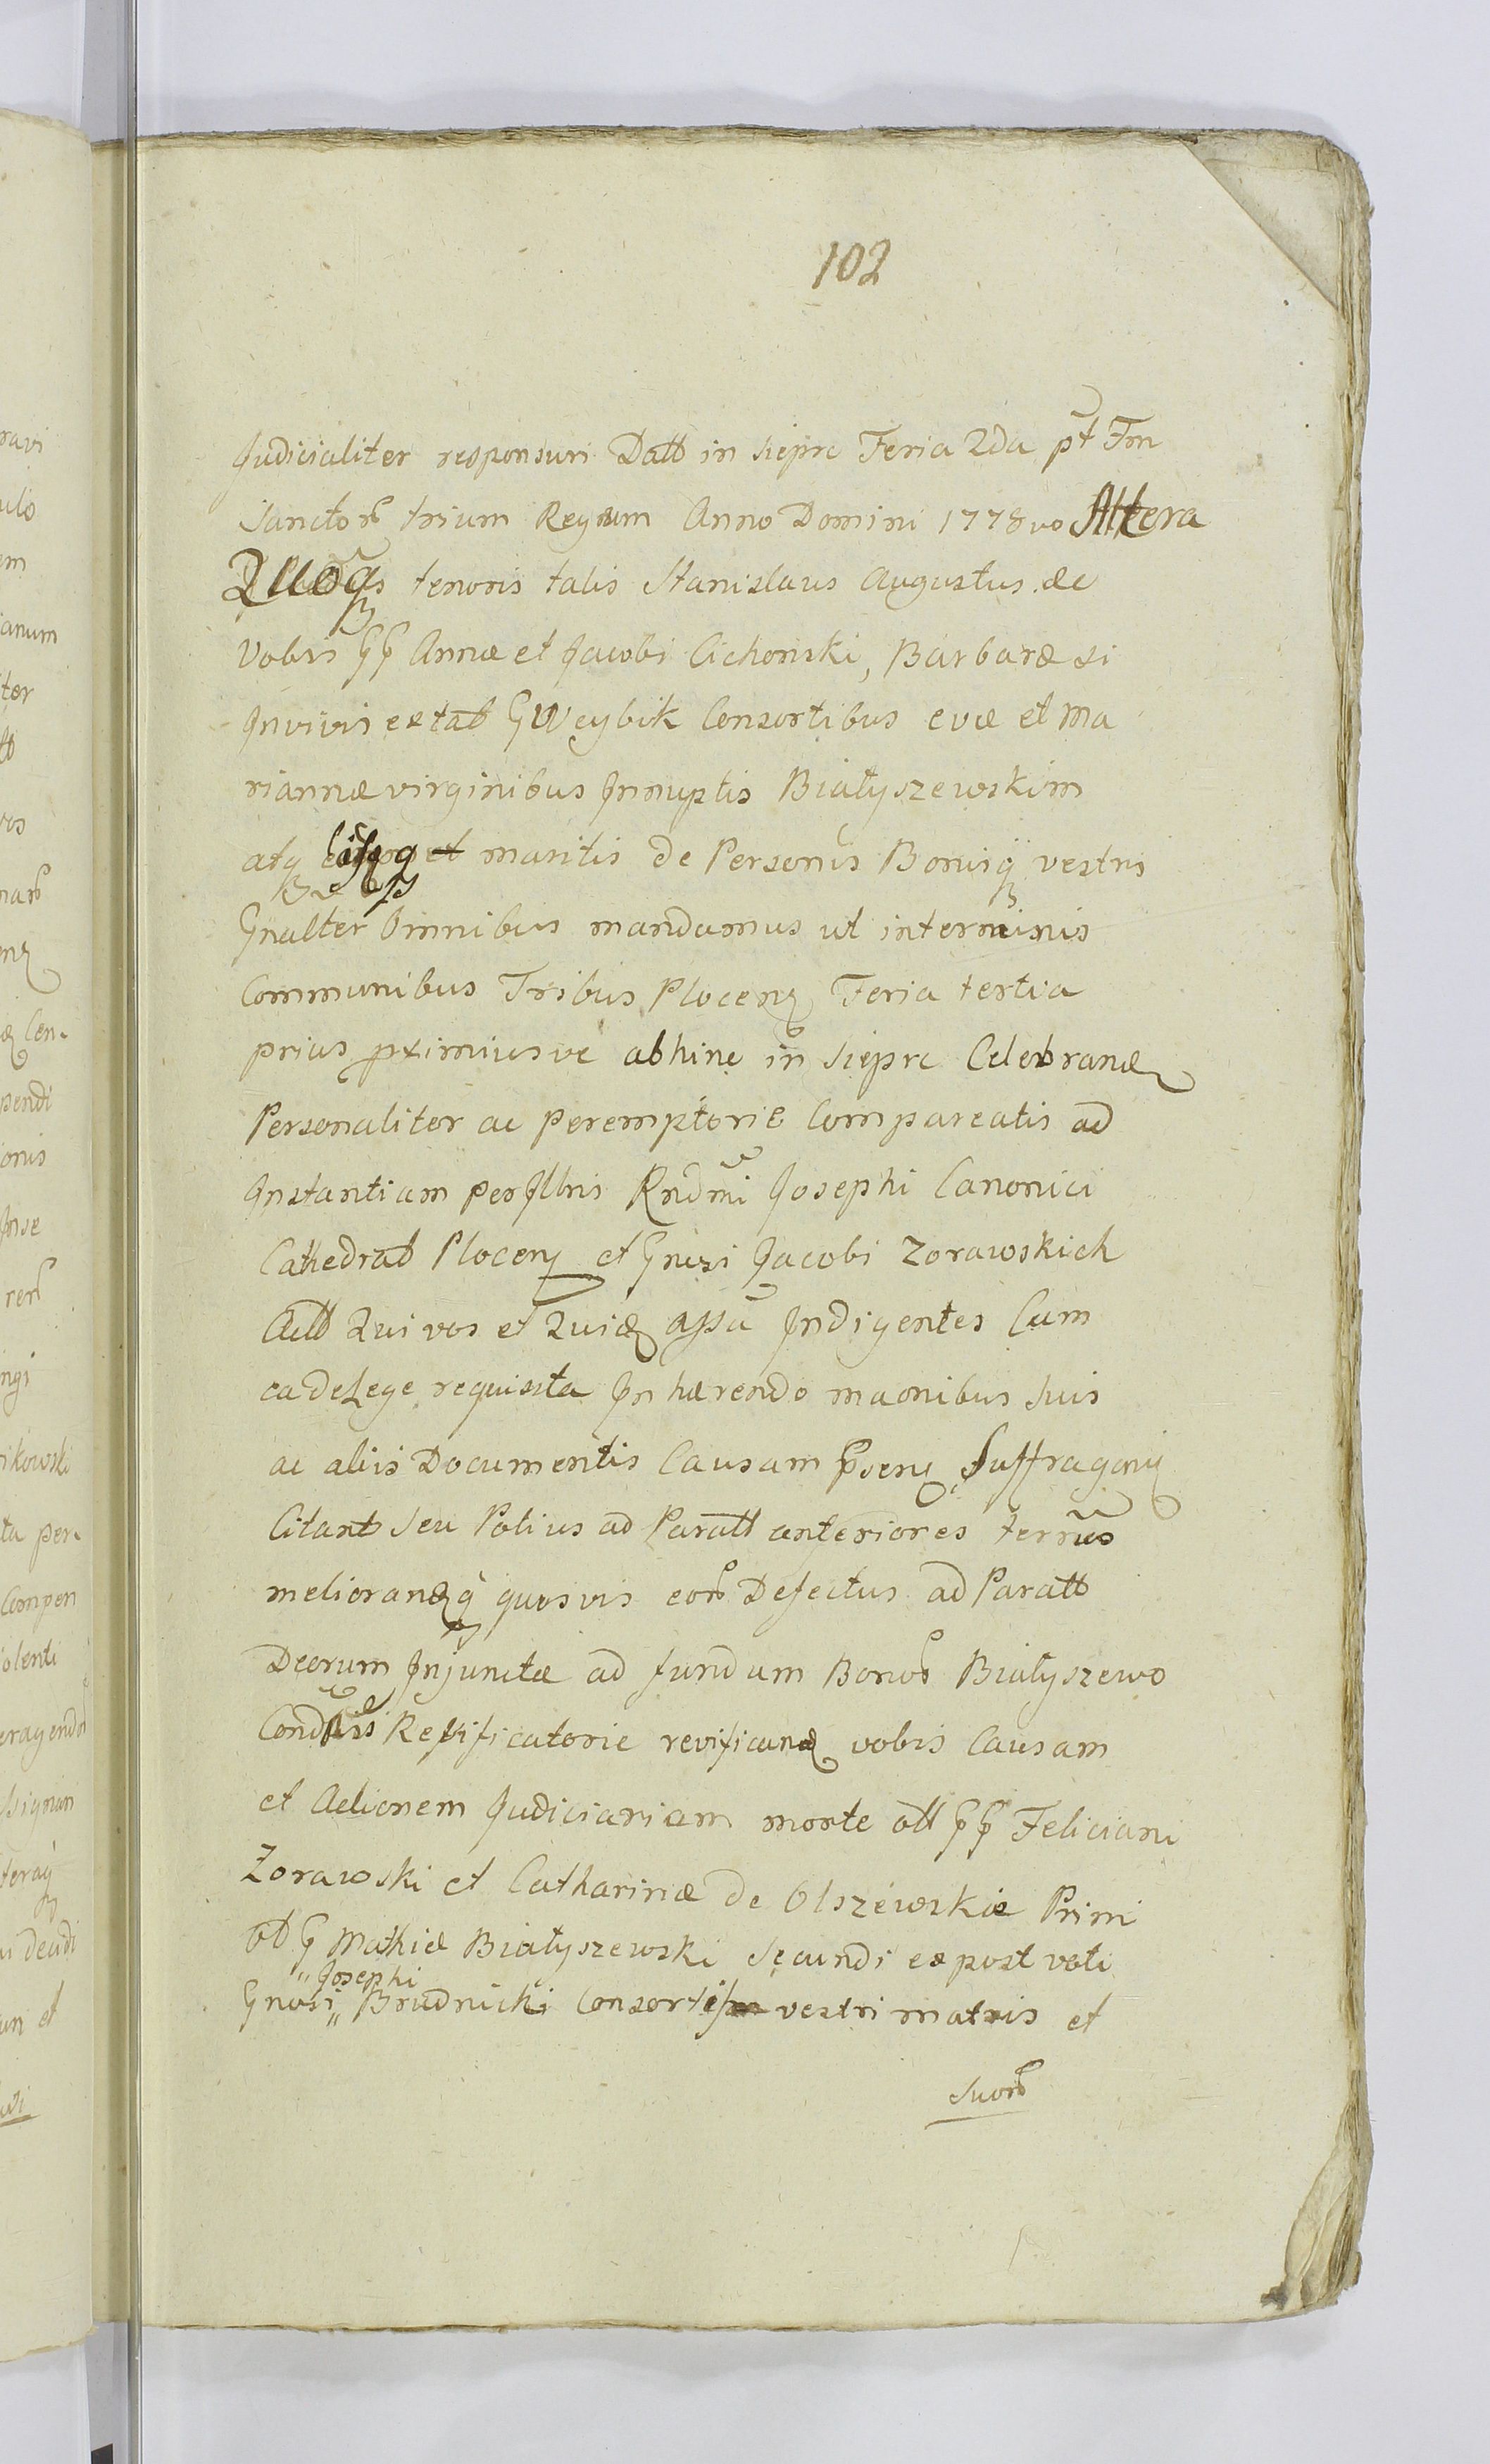 102
Judicialiter responsuri Datt in Siepre Feria 2da pt Fm
Sanctor trium Regum Anno Domini 1778vo Altera
tenoris talis Stanislaus Augustus &c
Vobis GG Annæ et Jacobi Cichonski, Barbaræ si
Invivis extat G Weybik Consortibus evæ et Ma
riannæ virginibus Innuptis Białyszewskim
atq et maritis de Personis Bonisq vestris
Gnalter Omnibus mandamus ut interminis
Communibus Tribus Plocen Feria tertia
prius pximiusve abhinc in Siepre Celebran
Personaliter ac peremptorie Compareatis ad
Instantiam perIllris Rndmi Josephi Canonici
Cathedral Plocen et Gnrsi Jacobi Zorawskich
Actt Qui vos et Quid assa Indigentes Cum
ea deLege requisita Inhærendo maonibus suis
ac aliis Documentis Causam psen Suffragan
Citant Seu Potius ad Paratt anteriores termos
melioranq quosvis eor Defectus ad Paratt
Deorum Injunctæ ad fundum Bonor Białyszewo
Cond Reficatorie revifican vobis Causam
et Actionem Judiciariam morte ott GG Feliciani
Zorawski et Catharinæ de Olszewskie Primi
ott G Mathiæ Białyszewski Secundi expost voti
"Josephi
Gnosi" Brudnicki Consortis vestri matris et
Suor
ravi
em
anum
ter
Cen-
pendi
onis
Inse
ngi
ikowski
ta per-
Compen
olenti
un et